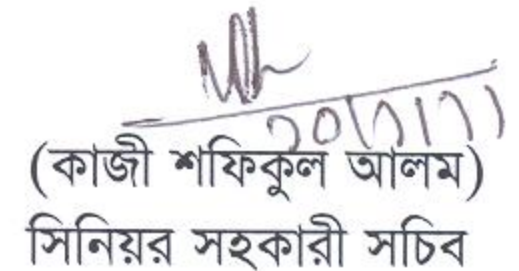 (কাজী শফিকুল আলম)
সিনিয়র সহকারী সচিব